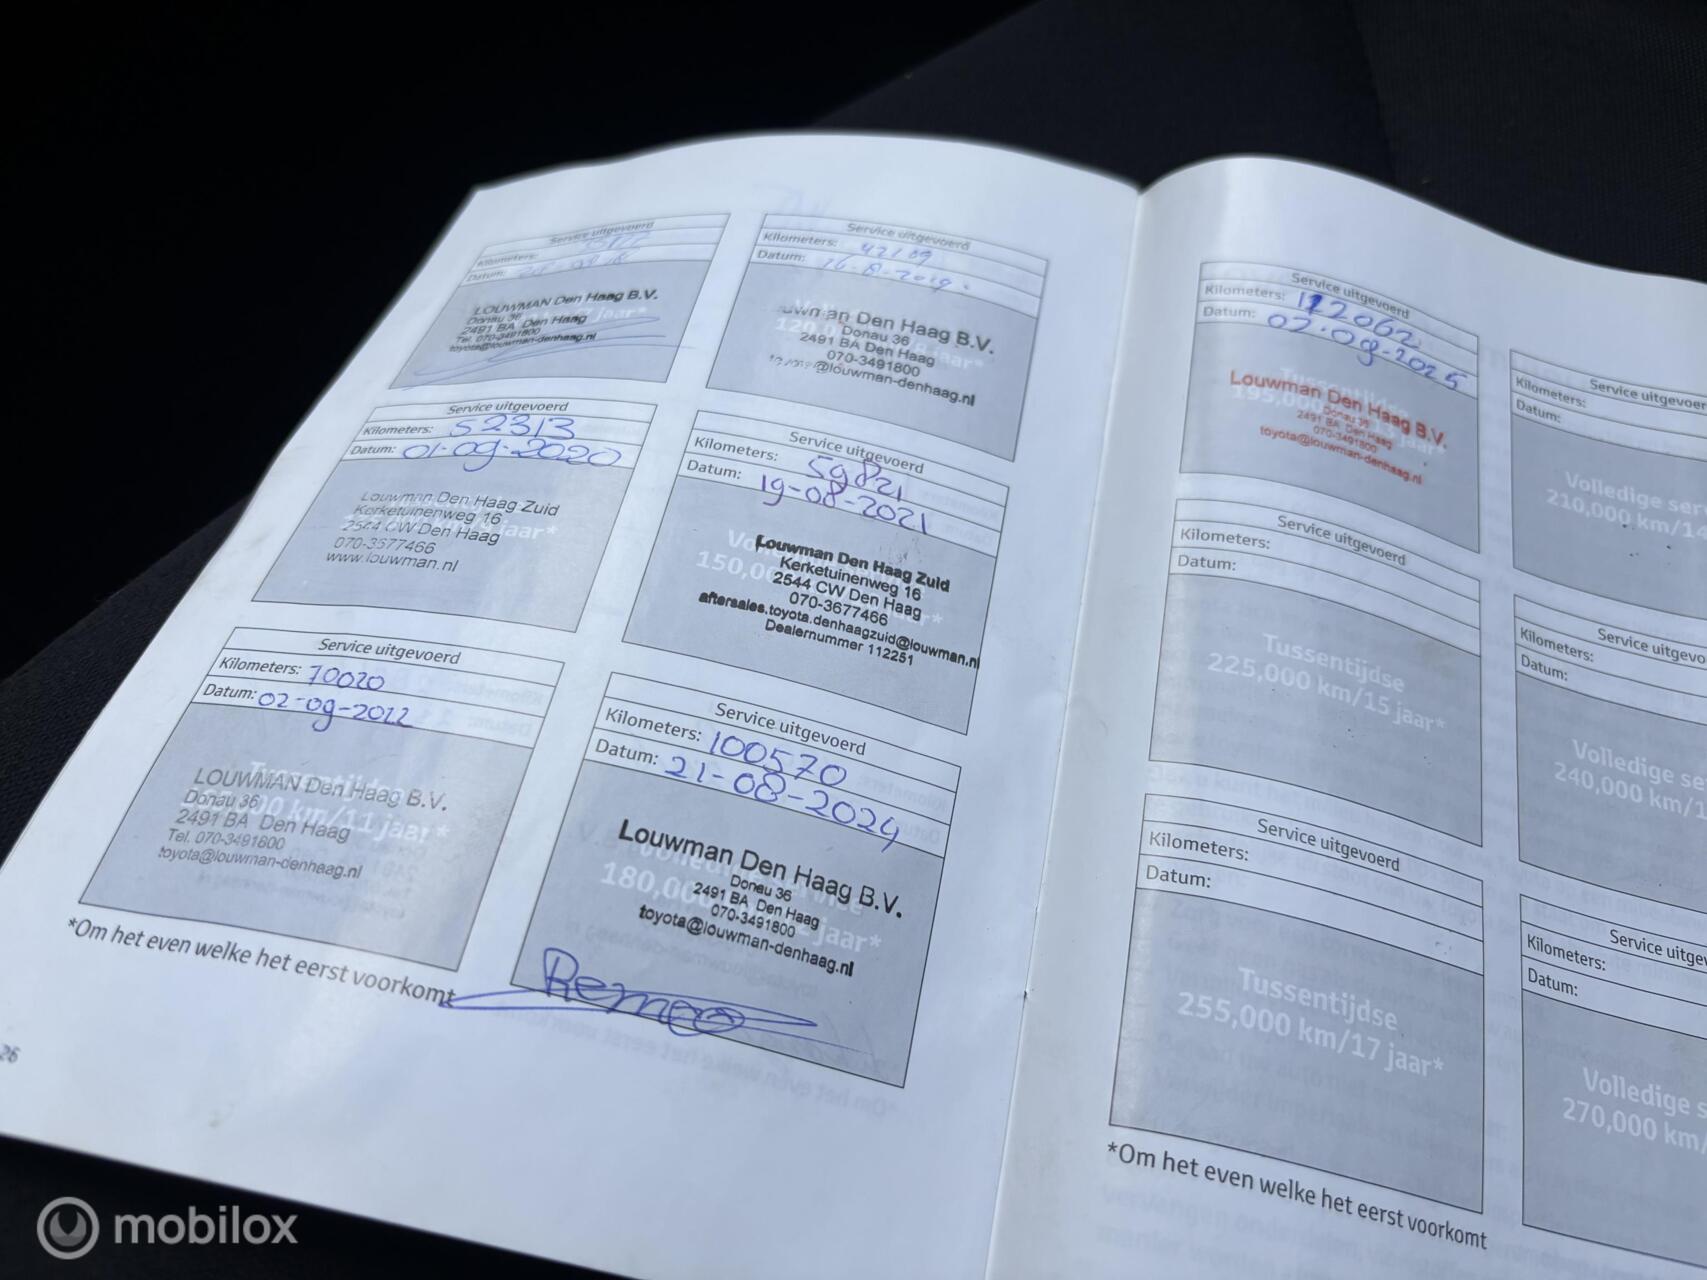 Service uitgevoerd
Kilometers:
Datum:
LOUWMAN Den Haag B.V.
Donau 36
2491 BA Den Haag
Tel. 070-3491800
toyota@louwman-denhaag.nl
Service uitgevoerd
Kilometers: 42109
Datum: 26-8-2019.
Den Haag B.V.
Donau 36
2491 BA Den Haag
070-3491800
@louwman-denhaag.nl
Service uitgevoerd
Kilometers: 52313
Datum: 01-09-2020
Louwman Den Haag Zuid
Kerketuinenweg 16
2544 CW Den Haag
070-3677466
www.louwman.nl
Service uitgevoerd
Kilometers: 59821
Datum: 19-08-2021
Louwman Den Haag Zuid
Kerketuinenweg 16
2544 CW Den Haag
070-3677466
aftersales.toyota.denhaagzuid@louwman.nl
Dealernummer 112251
Service uitgevoerd
Kilometers: 70020
Datum: 02-09-2022
Tussentijdse
km/11 jaar*
LOUWMAN Den Haag B.V.
Donau 36
2491 BA Den Haag
Tel. 070-3491800
toyota@louwman-denhaag.nl
Service uitgevoerd
Kilometers: 100570
Datum: 21-08-2024
180,000 jaar*
Louwman Den Haag B.V.
Donau 36
2491 BA Den Haag
070-3491800
toyota@louwman-denhaag.nl
Remco
*Om het even welke het eerst voorkomt
26
Service uitgevoerd
Kilometers: 112062
Datum: 02-09-2025
Tussentijdse
195,000
Louwman Den Haag B.V.
Donau 36
2491 BA Den Haag
070-3491800
toyota@louwman-denhaag.nl
Service uitgevoer
Kilometers:
Datum:
Volledige serv
210,000 km/14
Service uitgevoerd
Kilometers:
Datum:
Tussentijdse
225,000 km/15 jaar*
Service uitgevo
Kilometers:
Datum:
Volledige se
240,000 km/1
Service uitgevoerd
Kilometers:
Datum:
Tussentijdse
255,000 km/17 jaar*
Service uitgev
Kilometers:
Datum:
Volledige s
270,000 km/
*Om het even welke het eerst voorkomt
mobilox